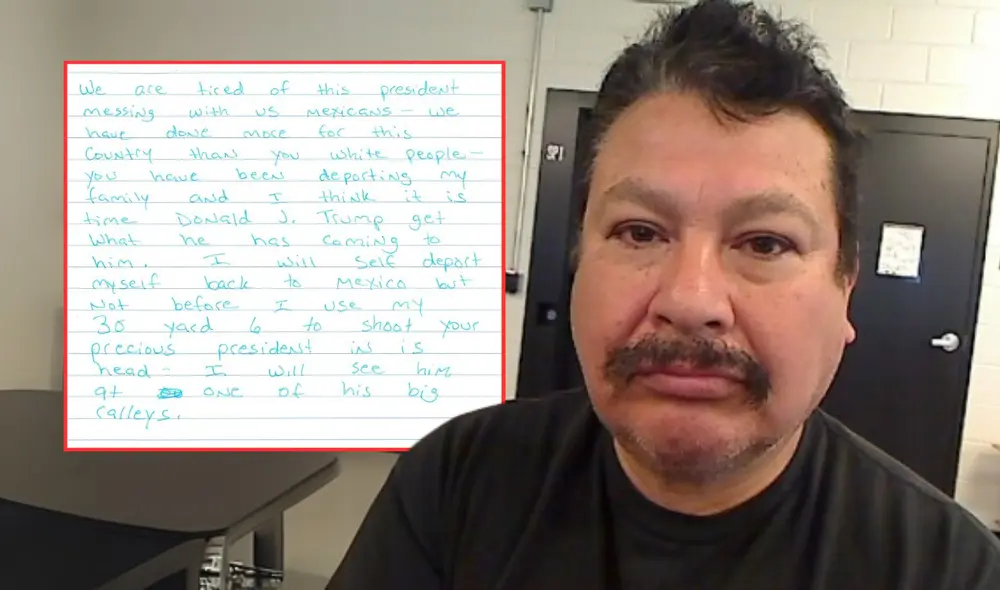 We are tired of this president
messing with us mexicans - we
have done more for this
country than you white people -
you have been deporting my
family and I think it is
time Donald J. Trump get
what he has coming to
him. I will self deport
myself back to mexico but
not before I use my
30 yard 6 to shoot your
precious president in is
head - I will see him
at one of his big
ralleys.
SPI